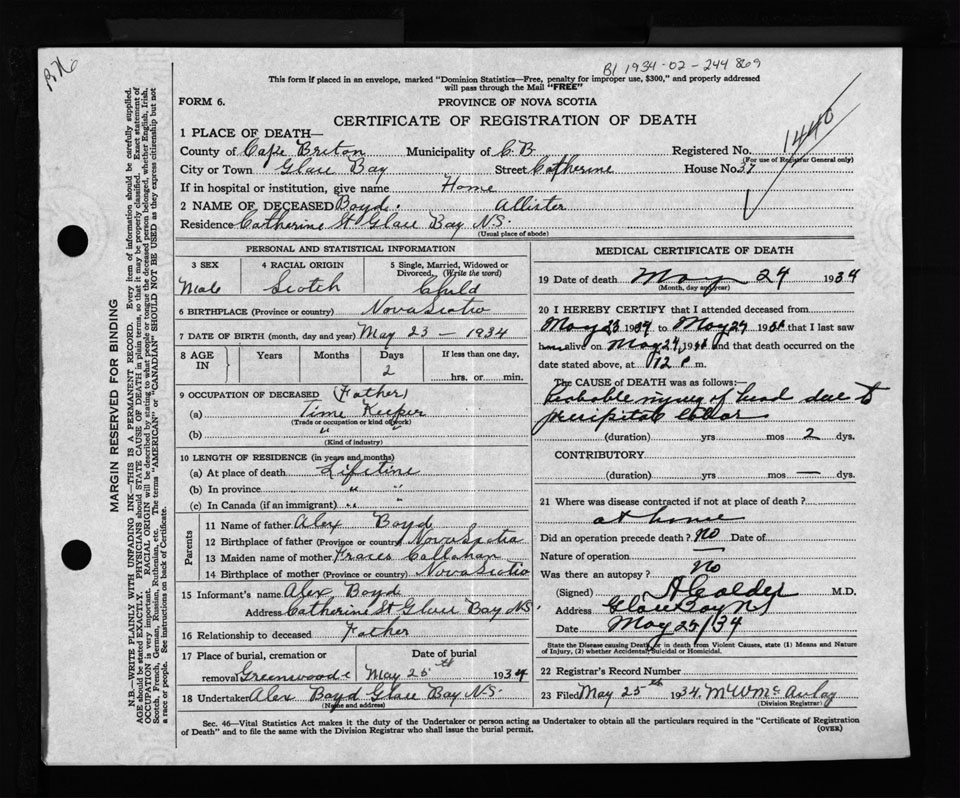 B1 1934-02-244869
This form if placed in an envelope, marked "Dominion Statistics—Free, penalty for improper use, $300," and properly addressed
will pass through the Mail "FREE"
FORM 6.
PROVINCE OF NOVA SCOTIA
CERTIFICATE OF REGISTRATION OF DEATH
1440
1 PLACE OF DEATH—
County of Cape Breton Municipality of C.B. Registered No.
(For use of Registrar General only)
City or Town Glace Bay Street Catherine House No. 37
If in hospital or institution, give name Home
2 NAME OF DECEASED Boyd. Allister
Residence Catherine St Glace Bay N.S.
(Usual place of abode)
PERSONAL AND STATISTICAL INFORMATION
3 SEX 4 RACIAL ORIGIN 5 Single, Married, Widowed or Divorced, (Write the word)
Male Scotch Child
6 BIRTHPLACE (Province or country) Nova Scotia
7 DATE OF BIRTH (month, day and year) May 23 — 1934
8 AGE IN Years Months Days If less than one day,
2 hrs. or min.
9 OCCUPATION OF DECEASED (Father)
(a) Time Keeper
(Trade or occupation or kind of work)
(b) "
(Kind of industry)
10 LENGTH OF RESIDENCE (in years and months)
(a) At place of death Lifetime
(b) In province " "
(c) In Canada (if an immigrant) " "
Parents
11 Name of father Alex Boyd
12 Birthplace of father (Province or country) Nova Scotia
13 Maiden name of mother Frances Callahan
14 Birthplace of mother (Province or country) Nova Scotia
15 Informant's name Alex Boyd
Address Catherine St Glace Bay N.S.
16 Relationship to deceased Father
17 Place of burial, cremation or removal Greenwood
Date of burial May 25th 1934
18 Undertaker Alex Boyd Glace Bay N.S.
(Name and address)
MEDICAL CERTIFICATE OF DEATH
19 Date of death May 24 1934
(Month, day and year)
20 I HEREBY CERTIFY that I attended deceased from
May 23 1934 to May 24 1934 that I last saw
him alive on May 24, 1934 and that death occurred on the
date stated above, at 12 P m.
The CAUSE OF DEATH was as follows:—
Probable injury of head due to
precipitate labor
(duration) yrs mos 2 dys.
CONTRIBUTORY
(duration) yrs mos — dys.
21 Where was disease contracted if not at place of death?
at home
Did an operation precede death? No Date of
Nature of operation
Was there an autopsy? No
(Signed) A Calder M.D.
Address Glace Bay NS
Date May 25/34
State the Disease causing Death, or in death from Violent Causes, state (1) Means and Nature of Injury, (2) whether Accidental, Suicidal or Homicidal.
22 Registrar's Record Number
23 Filed May 25th 1934 McW McAulay
(Division Registrar)
Sec. 46—Vital Statistics Act makes it the duty of the Undertaker or person acting as Undertaker to obtain all the particulars required in the "Certificate of Registration
of Death" and to file the same with the Division Registrar who shall issue the burial permit.
(OVER)
MARGIN RESERVED FOR BINDING
N.B.—WRITE PLAINLY, WITH UNFADING INK—THIS IS A PERMANENT RECORD. Every item of information should be carefully supplied.
AGE should be stated EXACTLY. PHYSICIANS should STATE CAUSE OF DEATH in plain terms, so that it may be properly classified. Exact statement of
OCCUPATION is very important. RACIAL ORIGIN will be described by stating to what people or tongue the deceased person belonged, whether English, Irish,
Scotch, French, German, Russian, Ruthenian, etc. The terms "AMERICAN" or "CANADIAN" SHOULD NOT BE USED as they express citizenship but not
a race or people. See instructions on back of Certificate.